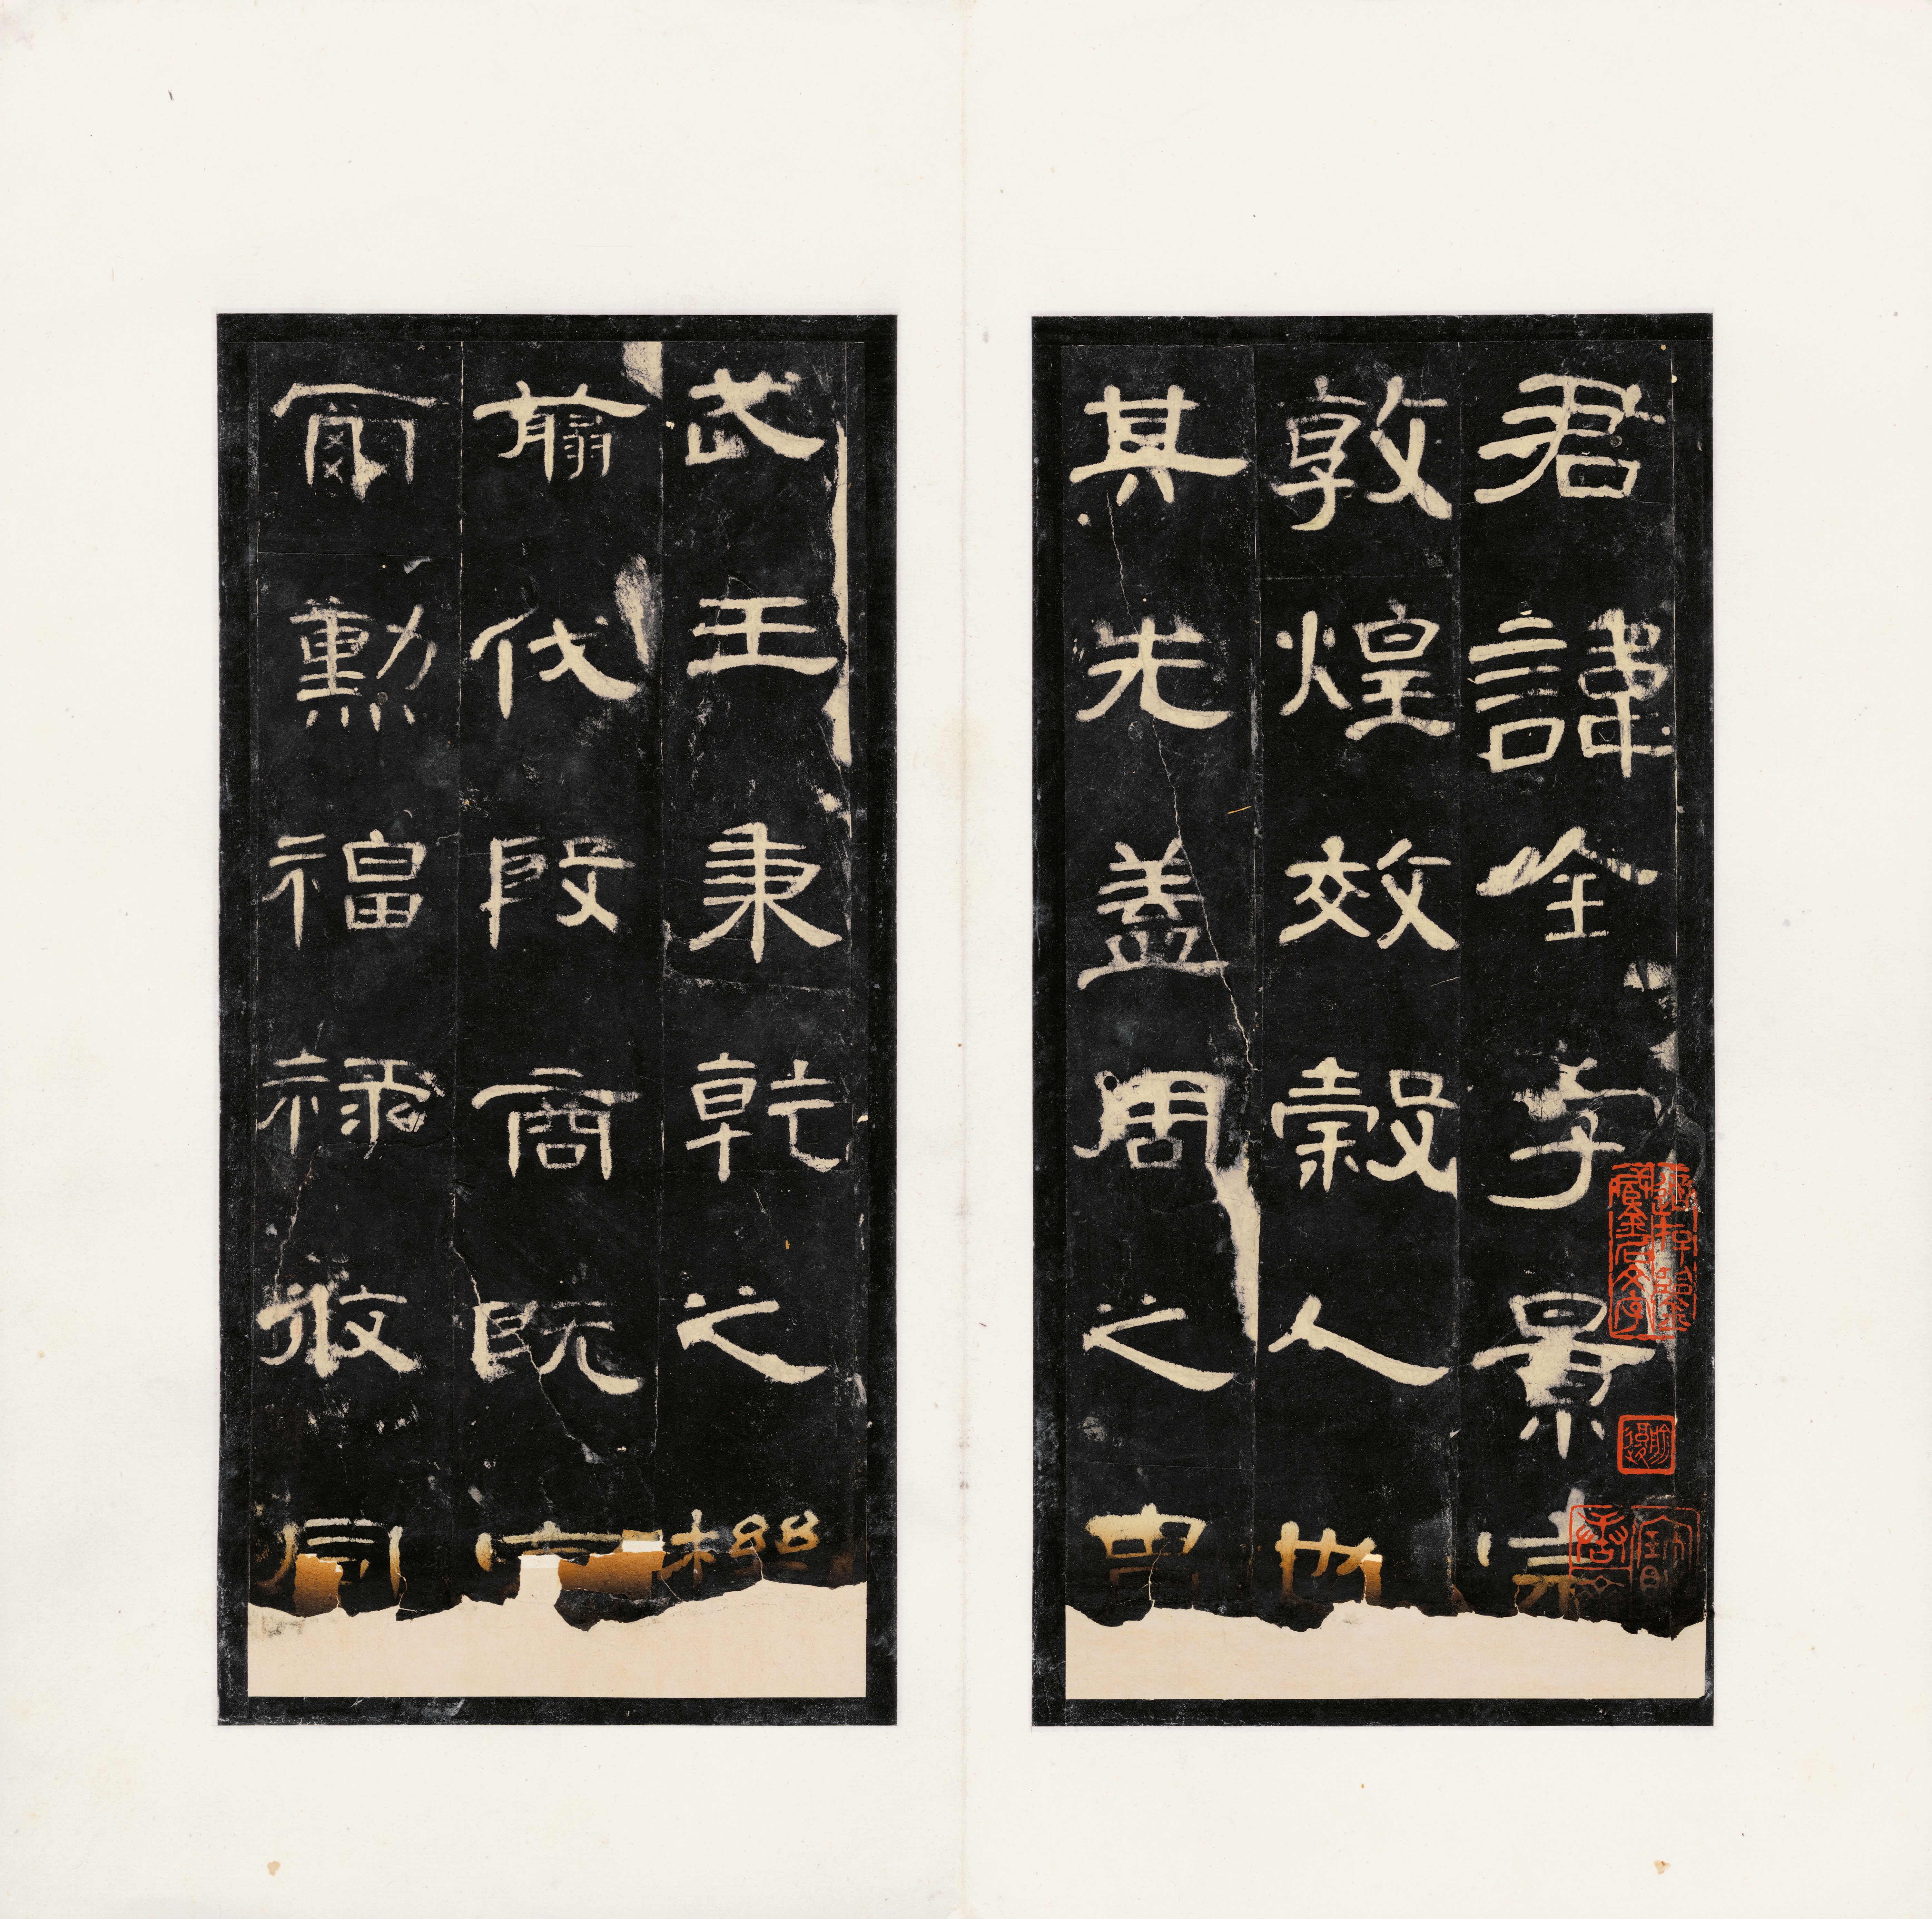 君諱全字景完
敦煌效穀人也
其先蓋周之冑
武王秉乾之機
翦伐殷商既定
爾勳福祿攸同